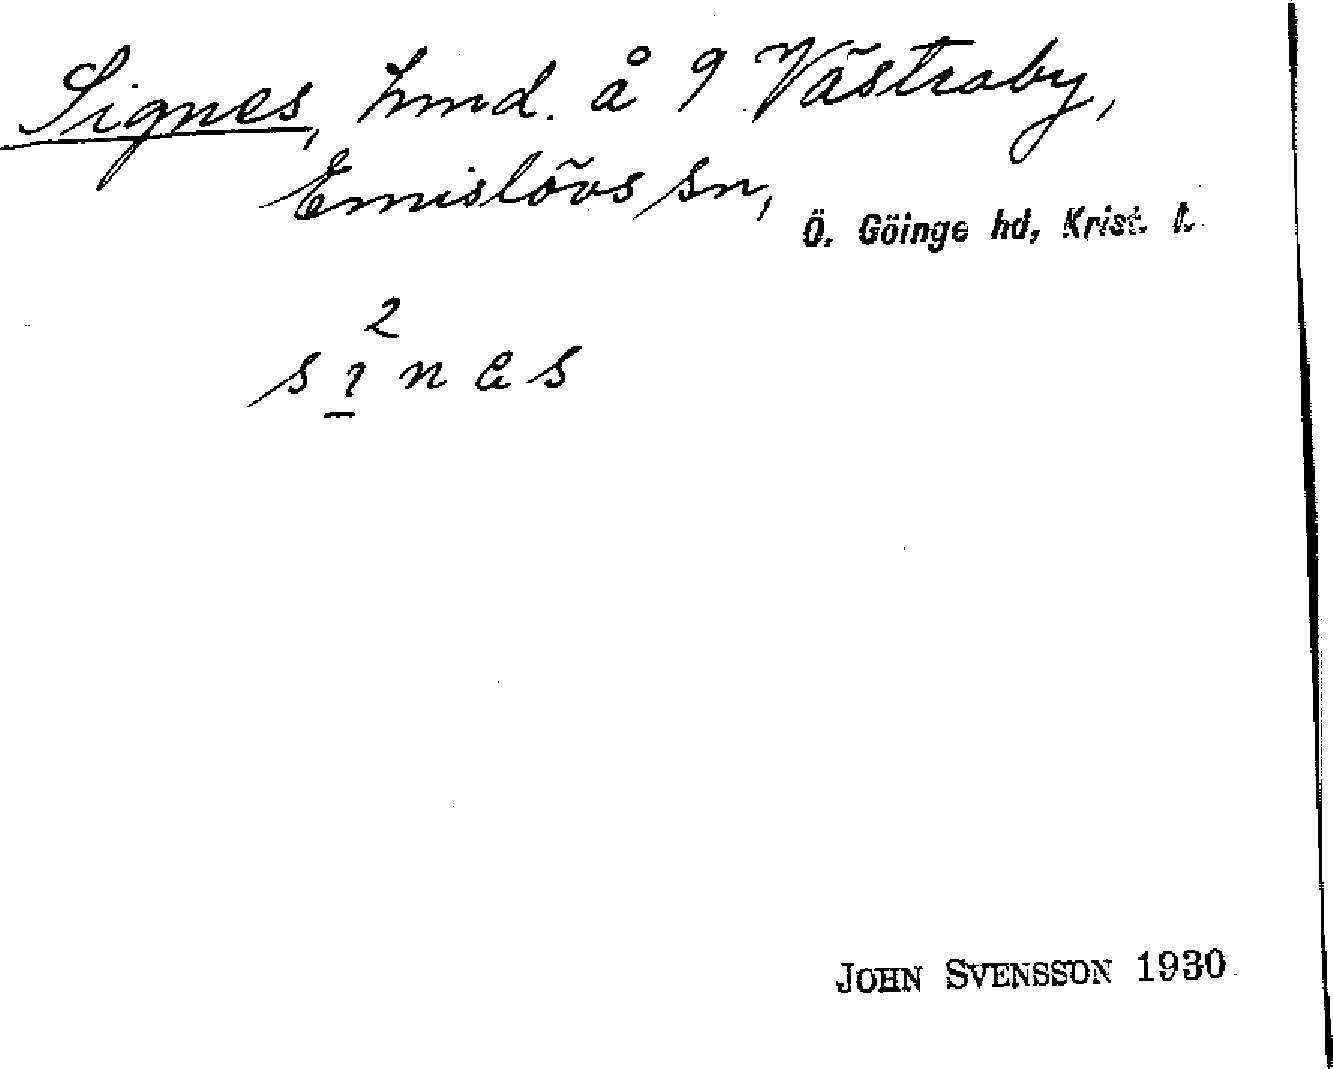 Signes, hmd. å 9 Västraby,
Emislövs sn,
Ö. Göinge hd, Krist. l.
2
s i n e s
JOHN SVENSSON 1930